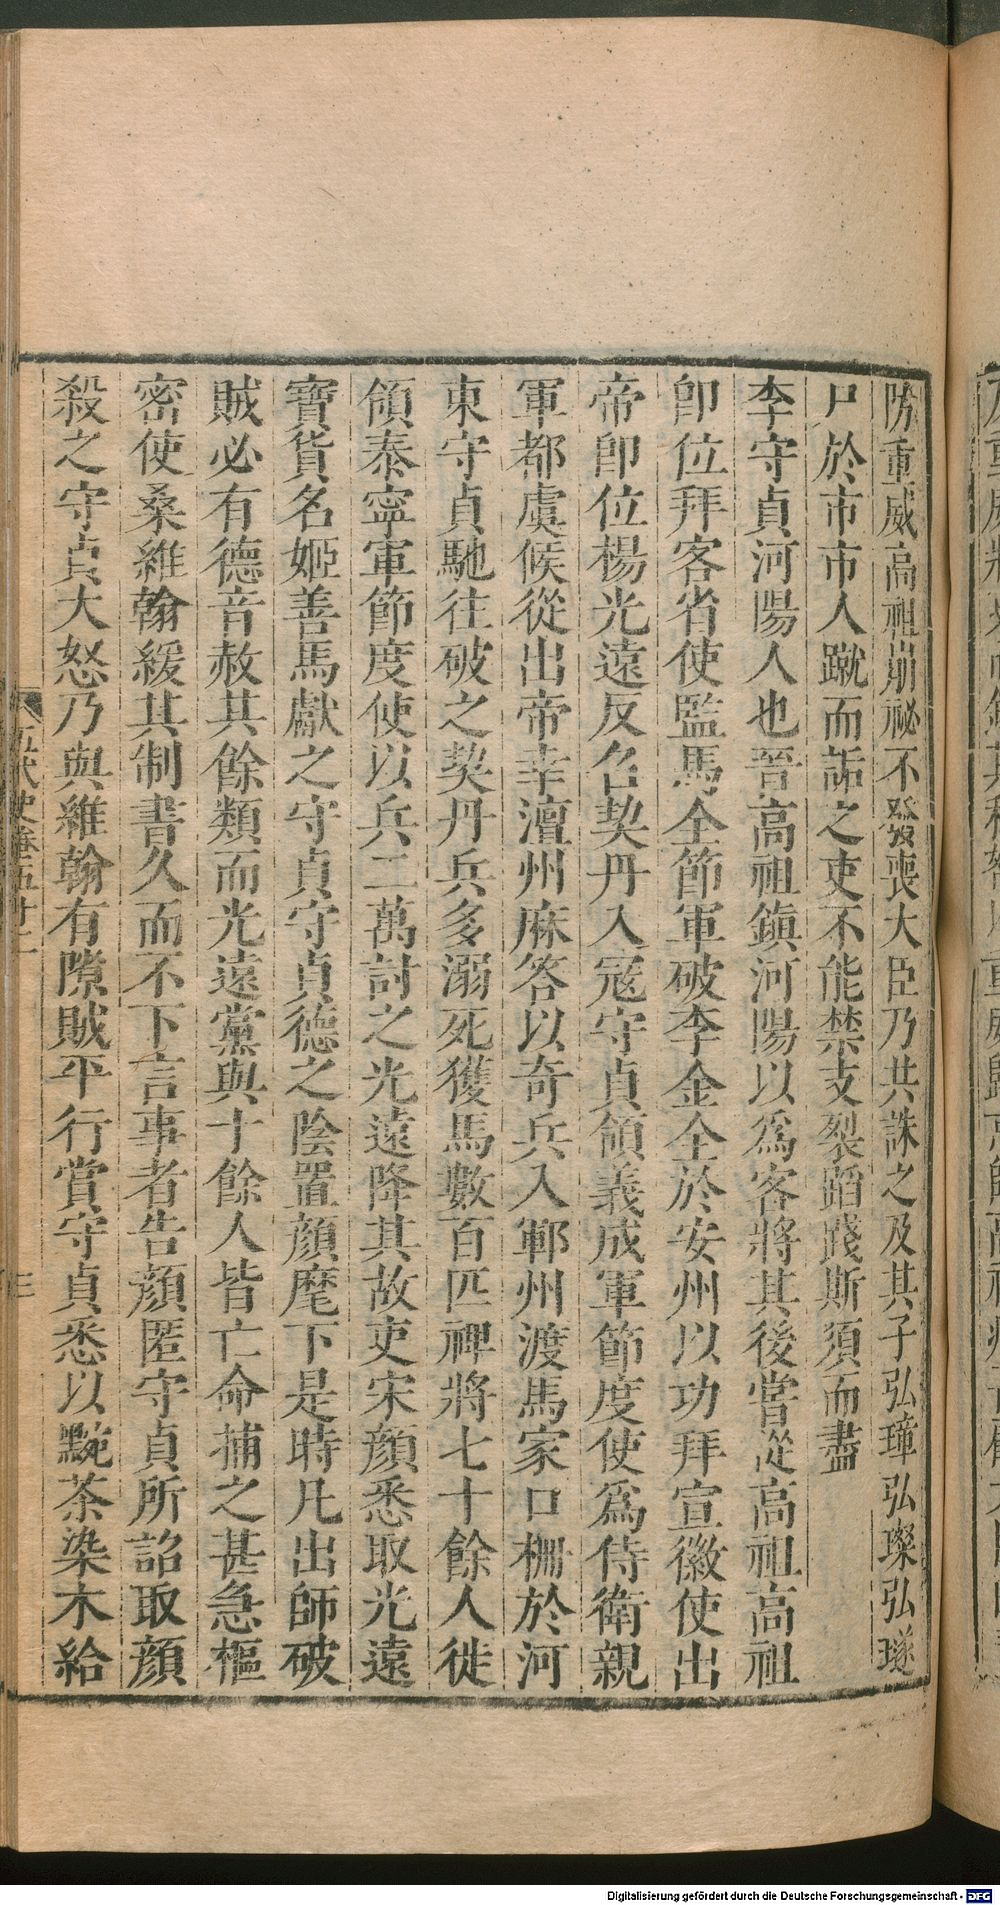 防重威高祖崩祕不發喪大臣乃共誅之及其子弘璋弘璨弘璲
尸於市市人蹴而詬之吏不能禁支裂蹈踐斯須而盡
李守貞河陽人也晉高祖鎮河陽以爲客將其後嘗從高祖高祖
卽位拜客省使監馬全節軍破李金全於安州以功拜宣徽使出
帝卽位楊光遠反召契丹入冦守貞領義成軍節度使爲侍衛親
軍都虞候從出帝幸澶州麻答以奇兵入鄆州渡馬家口柵於河
東守貞馳往破之契丹兵多溺死獲馬數百匹裨將七十餘人徙
領泰寧軍節度使以兵二萬討之光遠降其故吏宋顏悉取光遠
寶貨名姬善馬獻之守貞守貞德之陰置顏麾下是時凡出師破
賊必有德音赦其餘類而光遠黨與十餘人皆亡命捕之甚急樞
密使桑維翰緩其制書久而不下言事者告顏匿守貞所詔取顏
殺之守貞大怒乃與維翰有隙賊平行賞守貞悉以黦茶染木給
五代史卷五十二
三
Digitalisierung gefördert durch die Deutsche Forschungsgemeinschaft - DFG